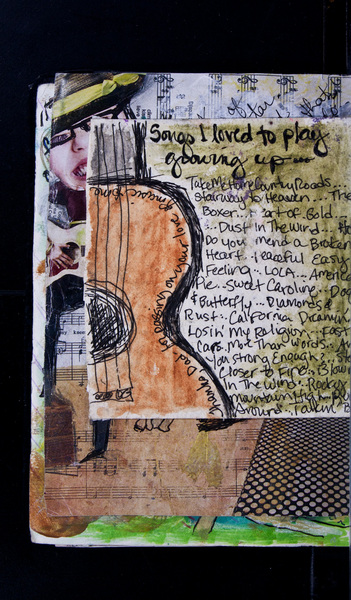 of
Songs I loved to play
growing up...
Take Me Home Country Roads...
Stairway to Heaven... The
Boxer... Heart of Gold...
Dust In The Wind...
Do You Mend a Broken
Heart... Peaceful Easy
Feeling... LOLA... Americ
Pie... Sweet Caroline... Do
& Butterfly... Diamonds &
Rust... California Dreamin
Losin' My Religion... Fast
Cars... More Than Words...
You Strong Enough?...
Closer to Fine... Blow
In The Wind... Rocky
Mountain High...
Around... Talkin' B
thanks Dad for passing on your love of music